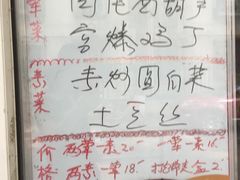 荤菜
宫爆鸡丁
素菜
素炒圆白菜
土豆丝
价格
两荤一素20 一荤一素16
两素一荤18